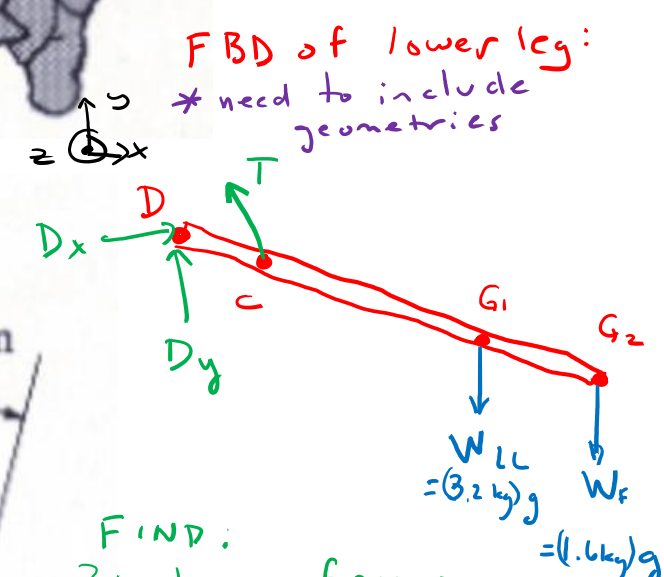 FBD of lower leg:
* need to include
geometries
y
z x
T
D
Dx
C
Dy
G1
G2
WLL
=(3.2kg)g
WF
=(1.6kg)g
FIND: